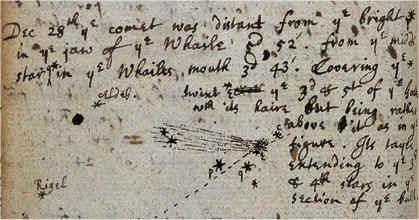 Dec 28th ye comet was distant from ye bright *
in ye jaw of ye Whaile 52'. from ye
star in ye Whailes mouth 3d 43'. Covering ye *
Aldeb. ye 3d & 5t of ye
wth its haire but being
above it as in ye
figure. Its
extending to ye
& 4th stars in
Section of ye
p q
Rigel